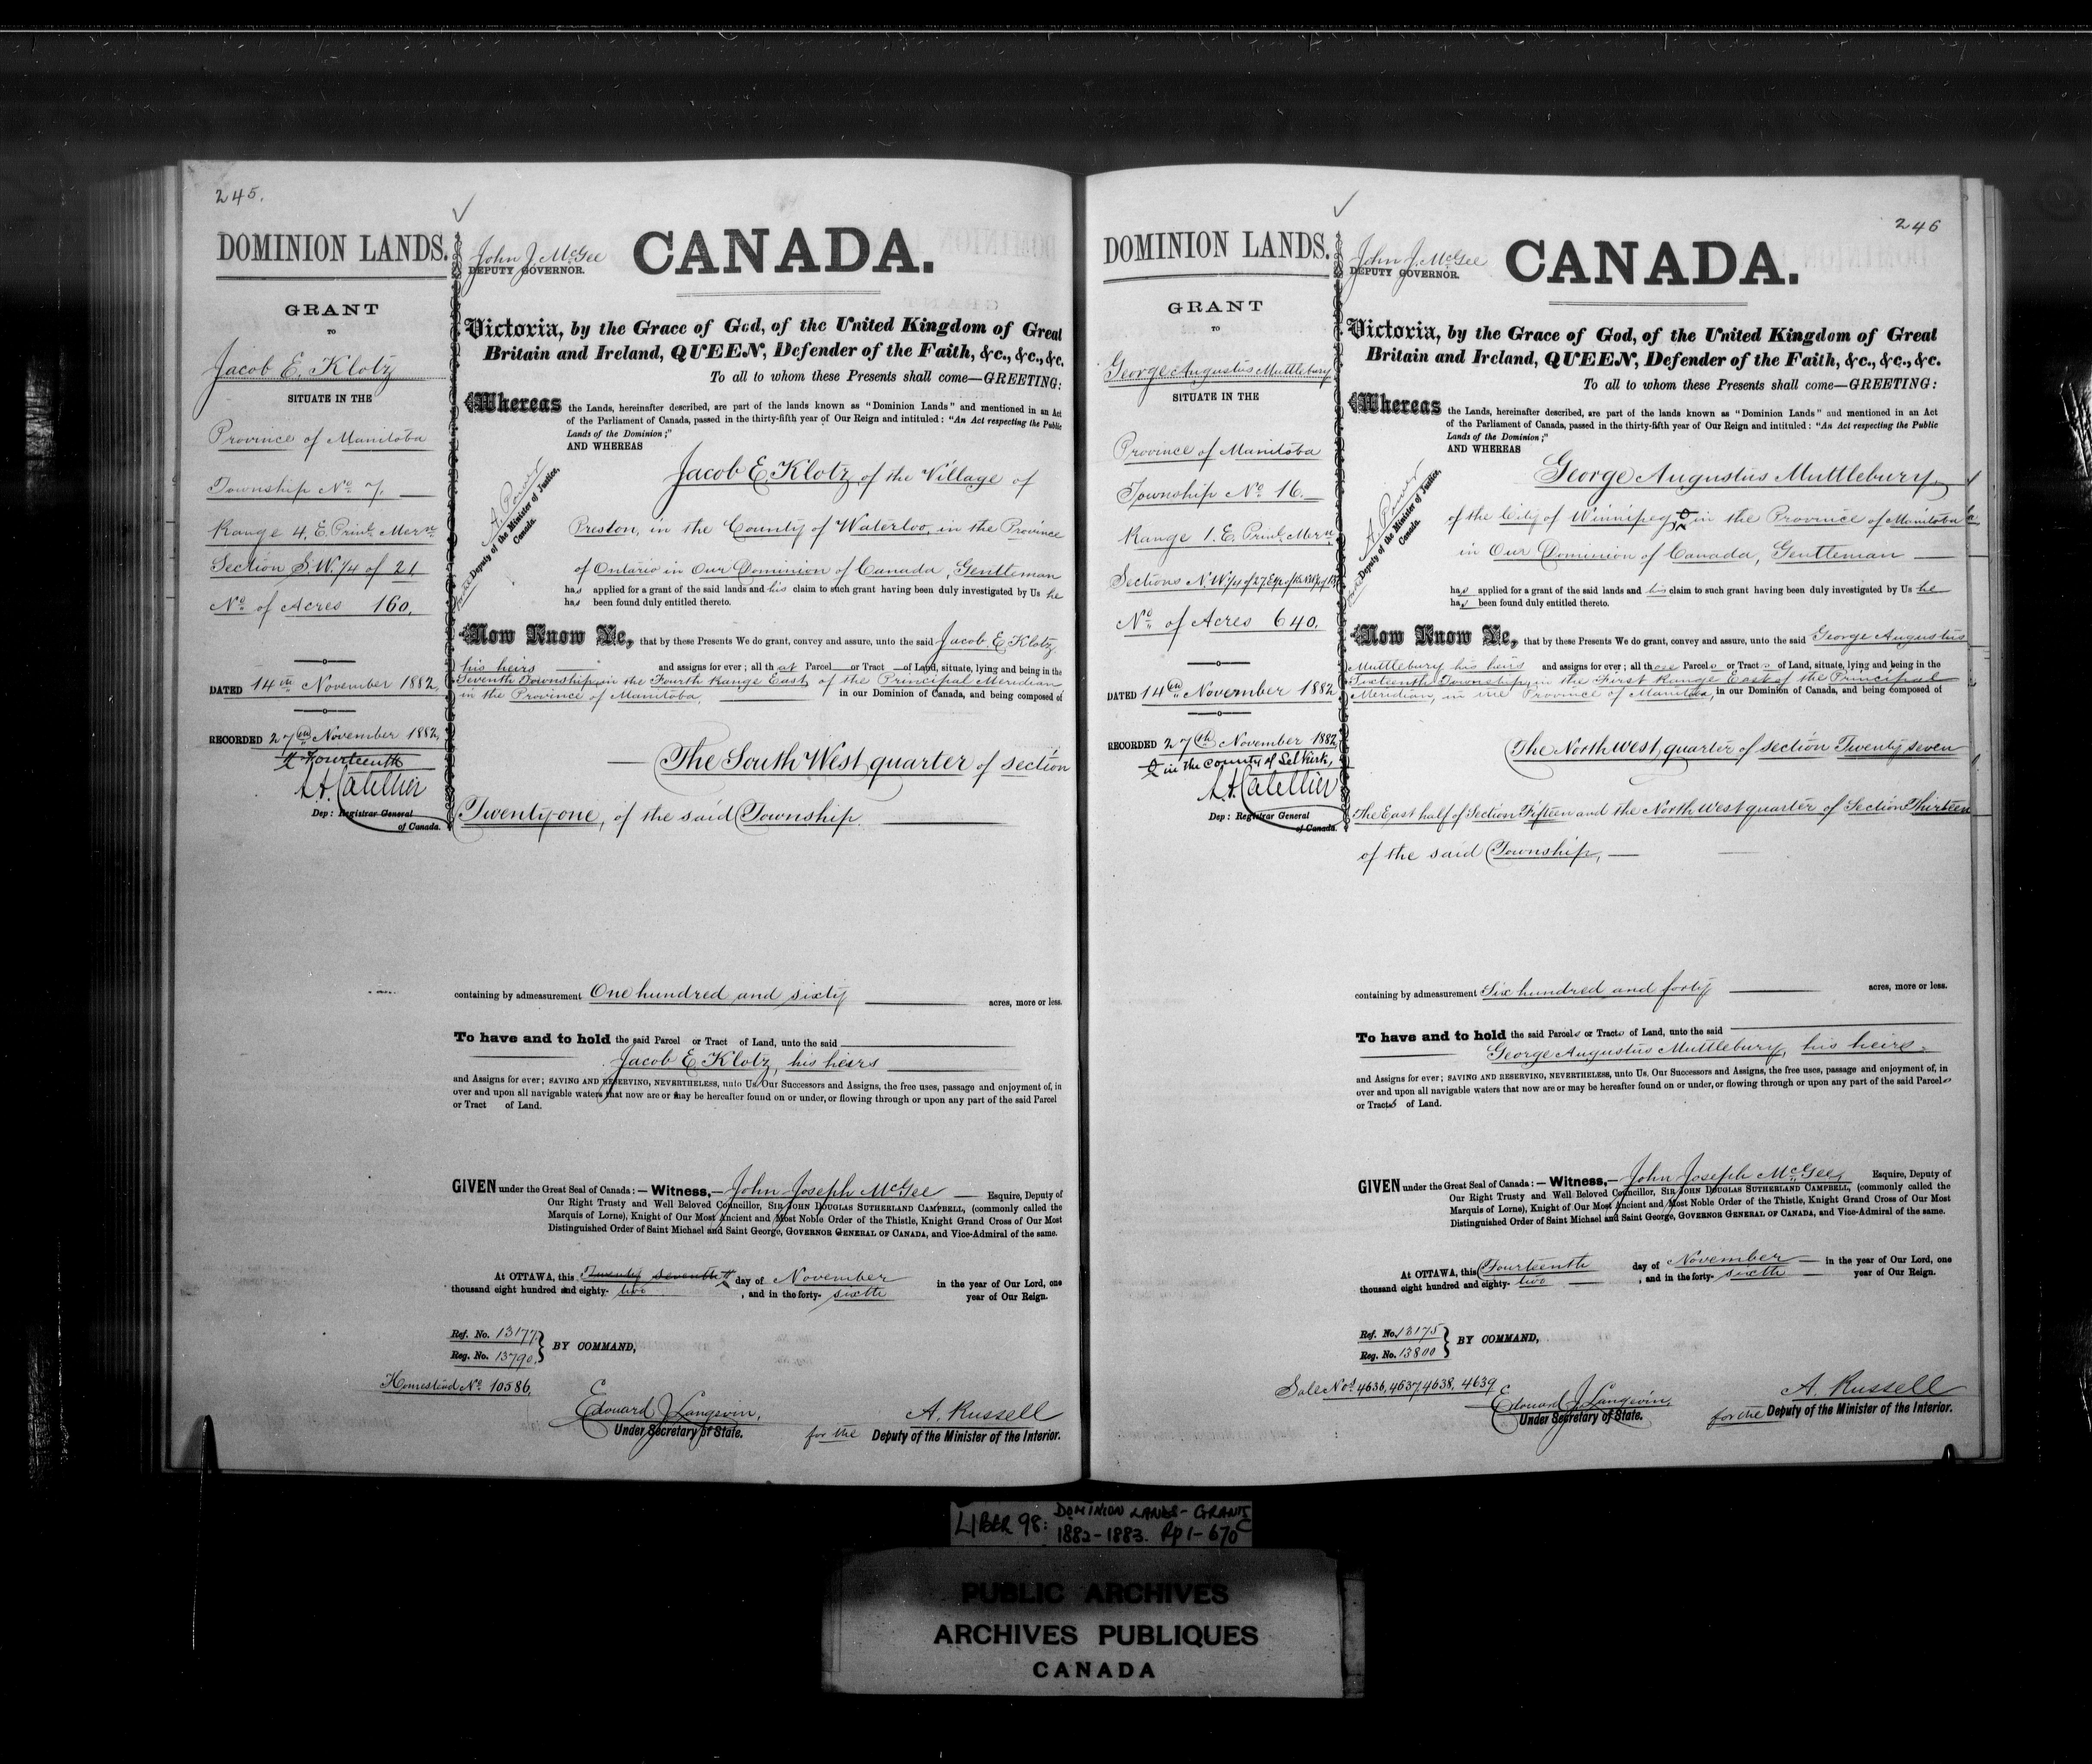 245.
DOMINION LANDS.
GRANT
TO
Jacob E. Klotz
SITUATE IN THE
Province of Manitoba
Township No 7.
Range 4, E. Prinl. Mern
Section S.W. 1/4 of 21
No of Acres 160.
DATED 14th November 1882.
RECORDED 27th November 1882.
Fourteenth
Dep: Registrar General
of Canada.
John J. McGee
DEPUTY GOVERNOR.
CANADA.
Victoria, by the Grace of God, of the United Kingdom of Great
Britain and Ireland, QUEEN, Defender of the Faith, &c., &c., &c.
To all to whom these Presents shall come—GREETING:
Whereas the Lands, hereinafter described, are part of the lands known as "Dominion Lands" and mentioned in an Act
of the Parliament of Canada, passed in the thirty-fifth year of Our Reign and intituled: "An Act respecting the Public
Lands of the Dominion;"
AND WHEREAS
Jacob E. Klotz of the Village of
Preston, in the County of Waterloo, in the Province
of Ontario in Our Dominion of Canada, Gentleman
Deputy of the Minister of Justice,
Canada.
has applied for a grant of the said lands and his claim to such grant having been duly investigated by Us he
has been found duly entitled thereto.
Now Know Ye, that by these Presents We do grant, convey and assure, unto the said Jacob. E. Klotz.
his heirs and assigns for ever; all that Parcel or Tract of Land, situate, lying and being in the
Seventh Township, in the Fourth Range East, of the Principal Meridian
in the Province of Manitoba, in our Dominion of Canada, and being composed of
The South West quarter of section
Twenty-one, of the said Township.
containing by admeasurement One hundred and sixty acres, more or less.
To have and to hold the said Parcel or Tract of Land, unto the said
Jacob E. Klotz, his heirs
and Assigns for ever; SAVING AND RESERVING, NEVERTHELESS, unto Us, Our Successors and Assigns, the free uses, passage and enjoyment of, in
over and upon all navigable waters that now are or may be hereafter found on or under, or flowing through or upon any part of the said Parcel
or Tract of Land.
GIVEN under the Great Seal of Canada:—Witness,—John Joseph McGee — Esquire, Deputy of
Our Right Trusty and Well Beloved Councillor, SIR JOHN DOUGLAS SUTHERLAND CAMPBELL, (commonly called the
Marquis of Lorne), Knight of Our Most Ancient and Most Noble Order of the Thistle, Knight Grand Cross of Our Most
Distinguished Order of Saint Michael and Saint George, GOVERNOR GENERAL OF CANADA, and Vice-Admiral of the same.
At OTTAWA, this Twenty seventh day of November in the year of Our Lord, one
thousand eight hundred and eighty-two, and in the forty-sixth year of Our Reign.
Ref. No. 13177
Reg. No. 13790.
BY COMMAND,
Homestead No. 10586.
Edouard J. Langevin,
Under Secretary of State.
A. Russell
for the Deputy of the Minister of the Interior.
246
DOMINION LANDS.
GRANT
TO
George Augustus Muttlebury
SITUATE IN THE
Province of Manitoba
Township No 16.
Range 1. E. Prinl. Mern
No of Acres 640.
DATED 14th November 1882
RECORDED 27th November 1882
in the County of Selkirk,
Dep: Registrar General
of Canada.
John J. McGee
DEPUTY GOVERNOR.
CANADA.
Victoria, by the Grace of God, of the United Kingdom of Great
Britain and Ireland, QUEEN, Defender of the Faith, &c., &c., &c.
To all to whom these Presents shall come—GREETING:
Whereas the Lands, hereinafter described, are part of the lands known as "Dominion Lands" and mentioned in an Act
of the Parliament of Canada, passed in the thirty-fifth year of Our Reign and intituled: "An Act respecting the Public
Lands of the Dominion;"
AND WHEREAS
George Augustus Muttlebury,
of the City of Winnipeg, in the Province of Manitoba
in Our Dominion of Canada, Gentleman
Deputy of the Minister of Justice,
Canada.
has applied for a grant of the said lands and his claim to such grant having been duly investigated by Us he
has been found duly entitled thereto.
Now Know Ye, that by these Presents We do grant, convey and assure, unto the said George Augustus
Muttlebury his heirs and assigns for ever; all those Parcels or Tracts of Land, situate, lying and being in the
Sixteenth Township, in the First Range East of the Principal
Meridian, in the Province of Manitoba, in our Dominion of Canada, and being composed of
The North west quarter of section Twenty seven
The East half of Section Fifteen and the North west quarter of Section Thirteen
of the said Township,
containing by admeasurement Six hundred and forty acres, more or less.
To have and to hold the said Parcels or Tracts of Land, unto the said
George Augustus Muttlebury, his heirs
and Assigns for ever; SAVING AND RESERVING, NEVERTHELESS, unto Us, Our Successors and Assigns, the free uses, passage and enjoyment of, in
over and upon all navigable waters that now are or may be hereafter found on or under, or flowing through or upon any part of the said Parcels
or Tracts of Land.
GIVEN under the Great Seal of Canada:—Witness,—John Joseph McGee, Esquire, Deputy of
Our Right Trusty and Well Beloved Councillor, SIR JOHN DOUGLAS SUTHERLAND CAMPBELL, (commonly called the
Marquis of Lorne), Knight of Our Most Ancient and Most Noble Order of the Thistle, Knight Grand Cross of Our Most
Distinguished Order of Saint Michael and Saint George, GOVERNOR GENERAL OF CANADA, and Vice-Admiral of the same.
At OTTAWA, this Fourteenth day of November in the year of Our Lord, one
thousand eight hundred and eighty-two, and in the forty-sixth year of Our Reign.
Ref. No. 13175
Reg. No. 13800
BY COMMAND,
Sale Nos 4636, 4637, 4638, 4639
Edouard J. Langevin,
Under Secretary of State.
A. Russell
for the Deputy of the Minister of the Interior.
LIBER 98: DOMINION LANDS - GRANTS
1882-1883. Pp 1-670
PUBLIC ARCHIVES
ARCHIVES PUBLIQUES
CANADA